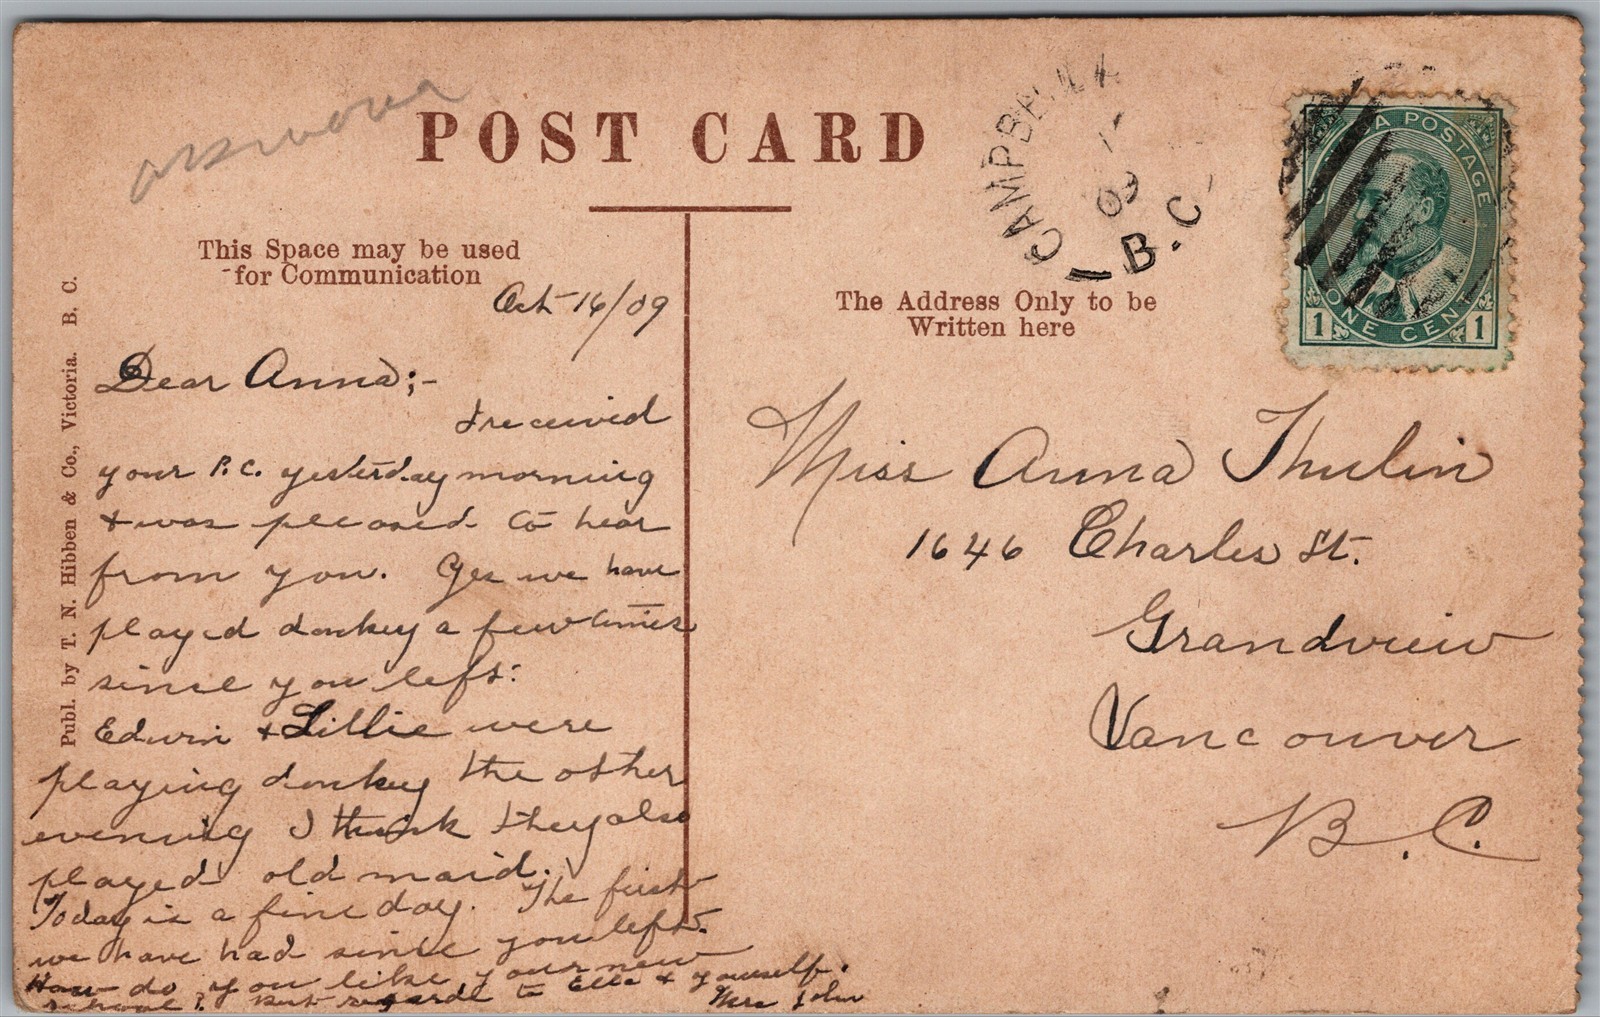 POST CARD
This Space may be used
for Communication
Publ. by T. N. Hibben & Co., Victoria. B. C.
Oct 16/09
Dear Anna;-
I received
your P.C. yesterday morning
& was pleased to hear
from you. Yes we have
played donkey a few times
since you left.
Edwin & Lillie were
playing donkey the other
evening I think they also
played old maid.
Today is a fine day. The first
we have had since you left.
How do you like your new
school? Best regards to Ella & yourself.
Mrs John
CAMPBELL
09
B.C.
CANADA POSTAGE
1 ONE CENT 1
The Address Only to be
Written here
Miss Anna Thulin
1646 Charles St.
Grandview
Vancouver
B.C.